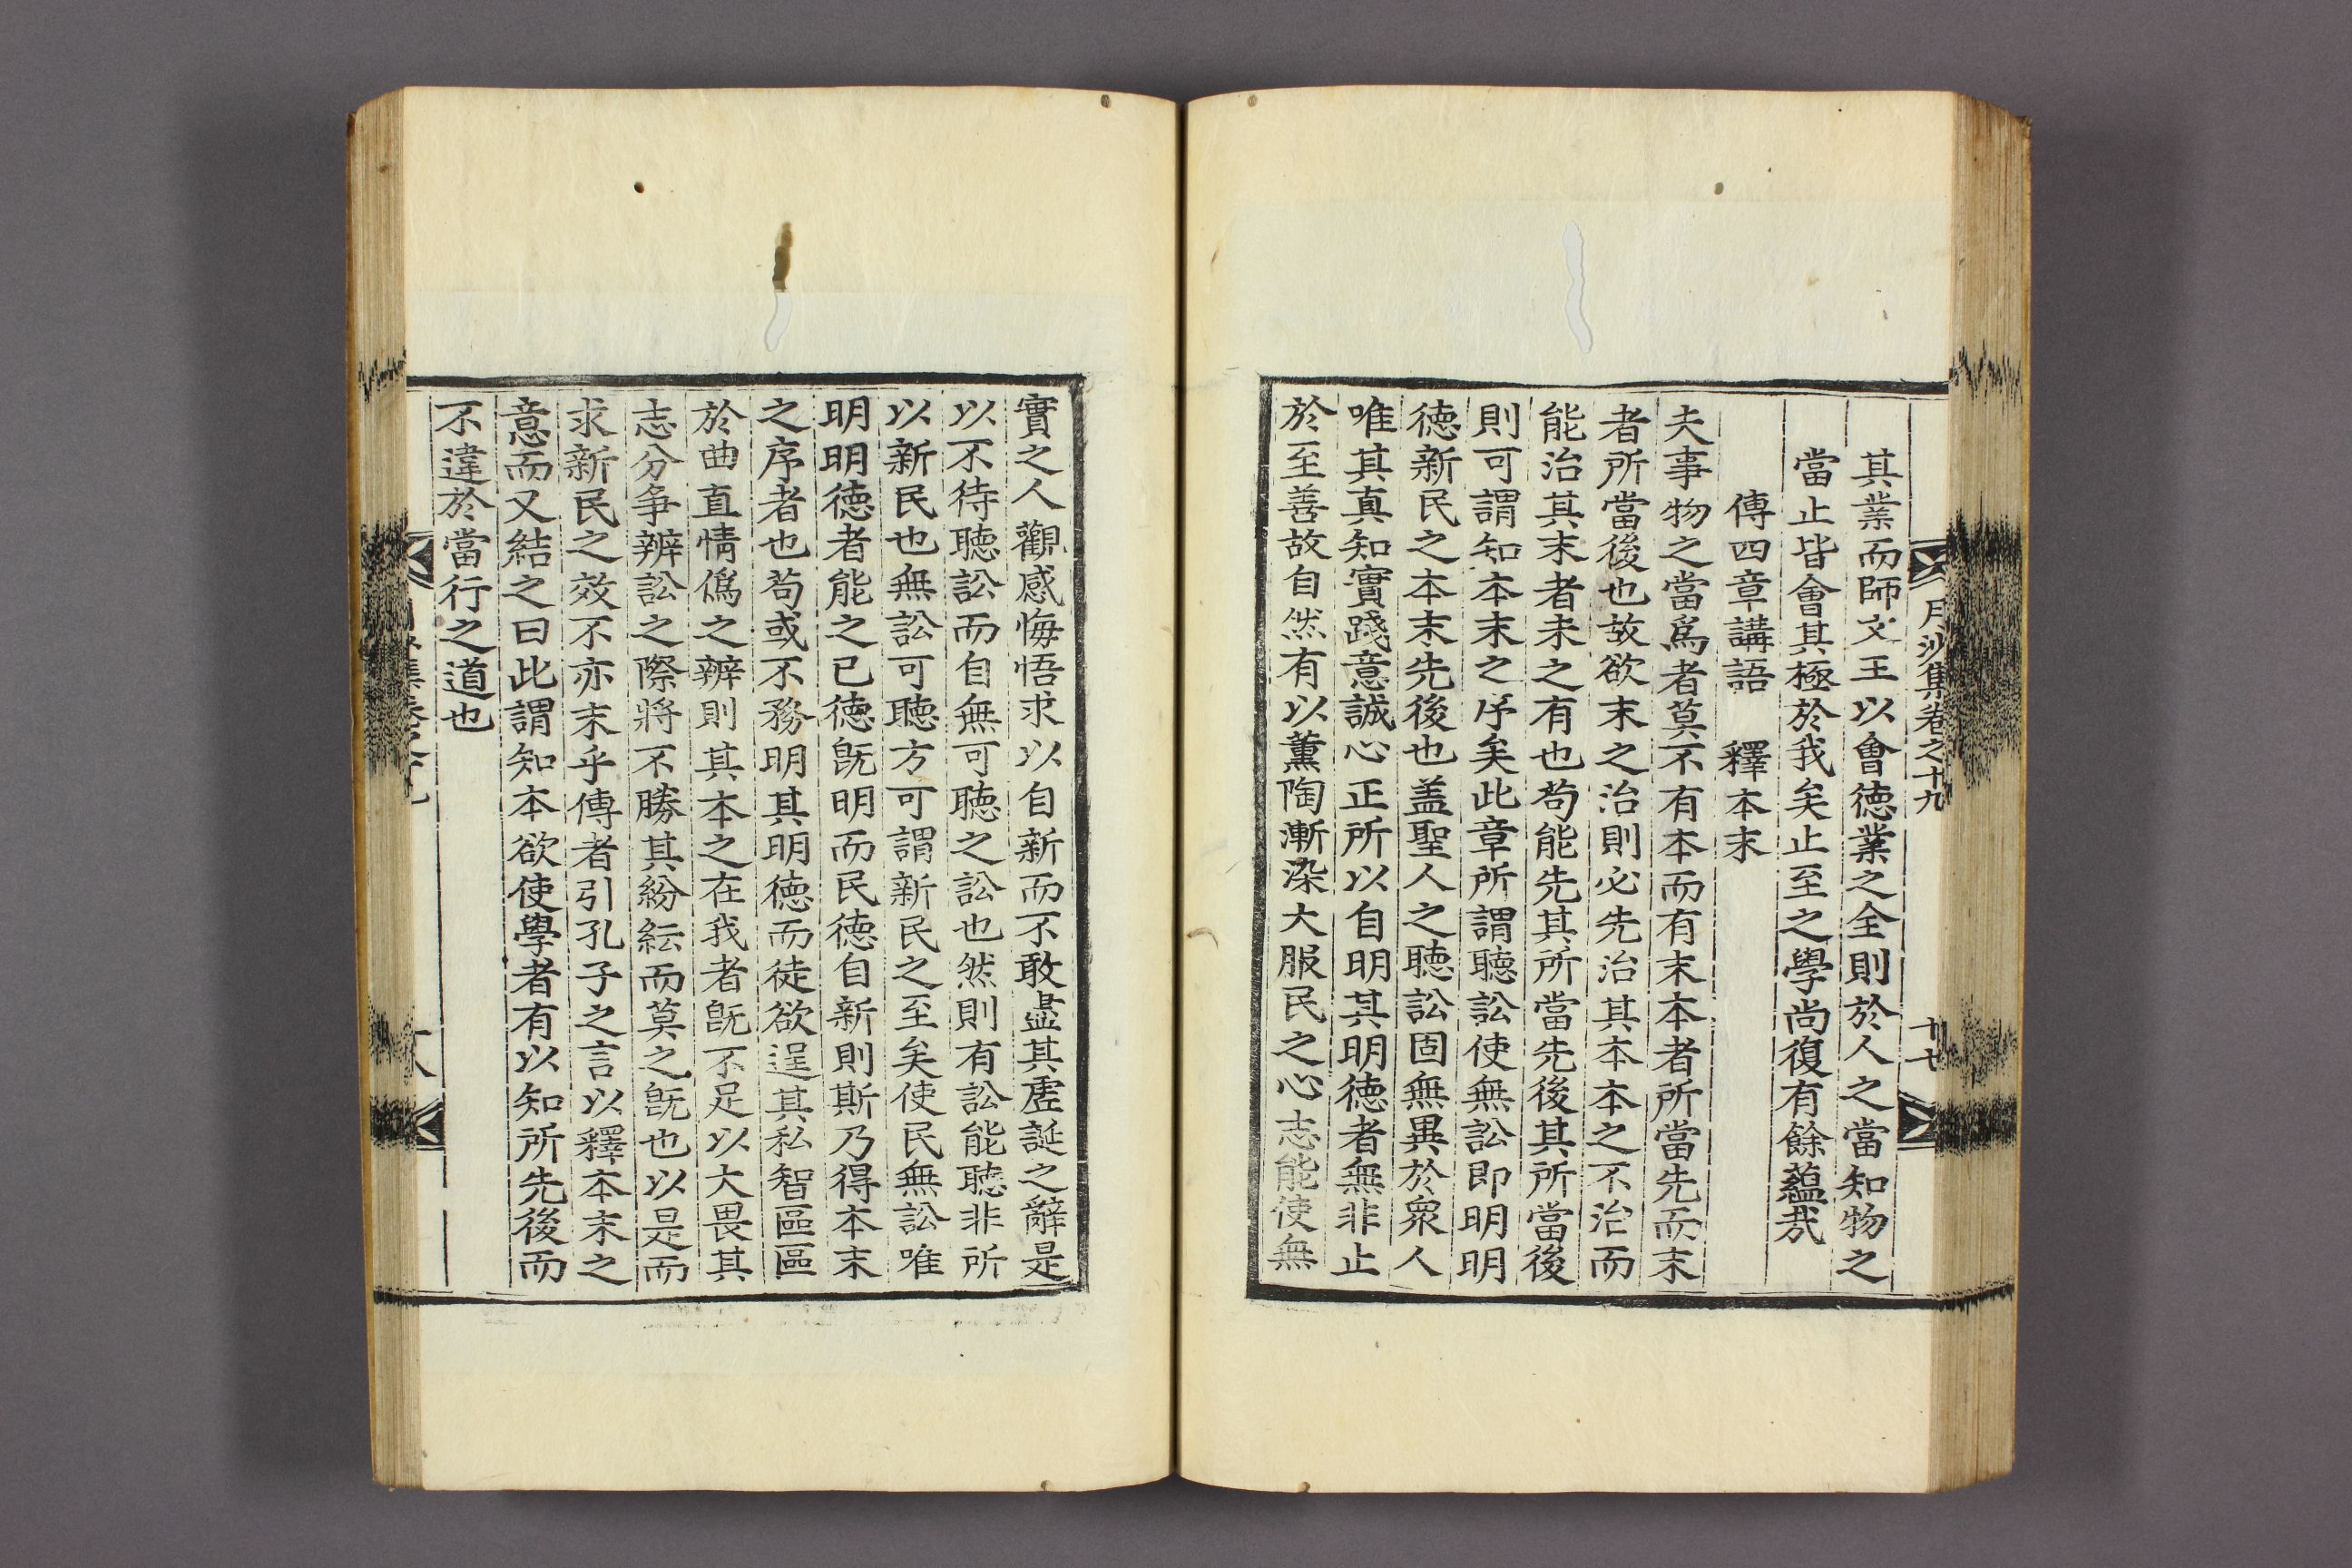 月沙集卷之十九
十七
其業而師文王以會德業之全則於人之當知物之
當止皆會其極於我矣止至之學尚復有餘蘊哉
傳四章講語 釋本末
夫事物之當爲者莫不有本而有末本者所當先而末
者所當後也故欲末之治則必先治其本本之不治而
能治其末者未之有也苟能先其所當先後其所當後
則可謂知本末之序矣此章所謂聽訟使無訟即明明
德新民之本末先後也盖聖人之聽訟固無異於衆人
唯其真知實踐意誠心正所以自明其明德者無非止
於至善故自然有以薰陶漸染大服民之心志能使無
實之人觀感悔悟求以自新而不敢盡其虛誕之辭是
以不待聽訟而自無可聽之訟也然則有訟能聽非所
以新民也無訟可聽方可謂新民之至矣使民無訟唯
明明德者能之已德旣明而民德自新則斯乃得本末
之序者也苟或不務明其明德而徒欲逞其私智區區
於曲直情僞之辨則其本之在我者旣不足以大畏其
志分爭辨訟之際將不勝其紛紜而莫之旣也以是而
求新民之效不亦末乎傳者引孔子之言以釋本末之
意而又結之曰此謂知本欲使學者有以知所先後而
不違於當行之道也